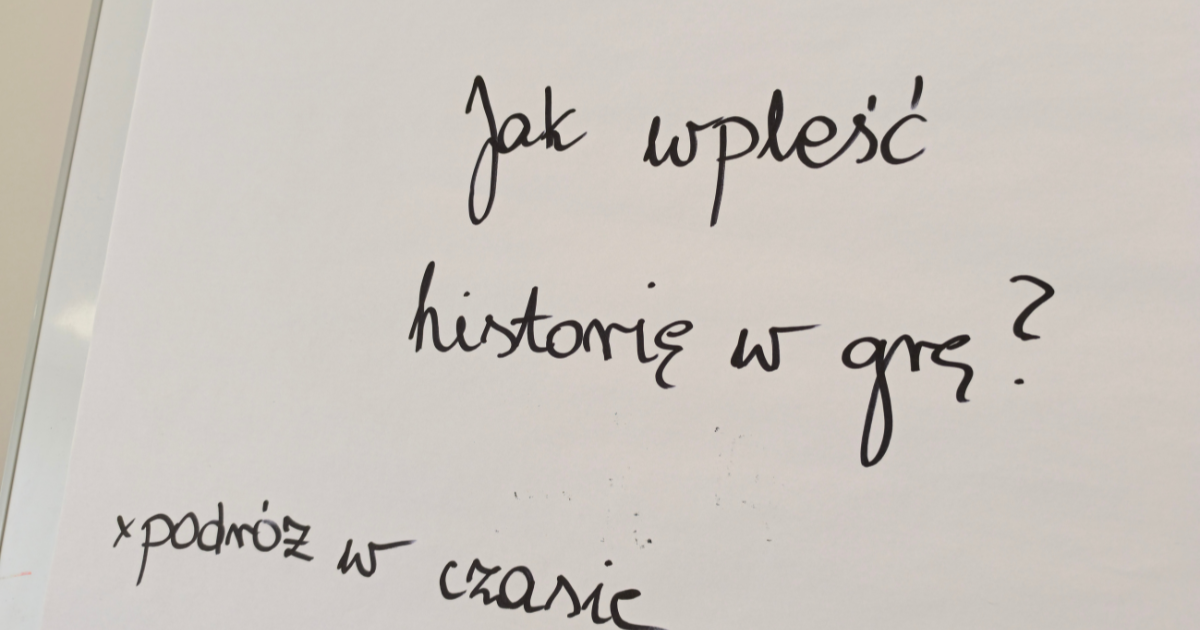 Jak wpleść
historię w grę?
x podróż w czasie